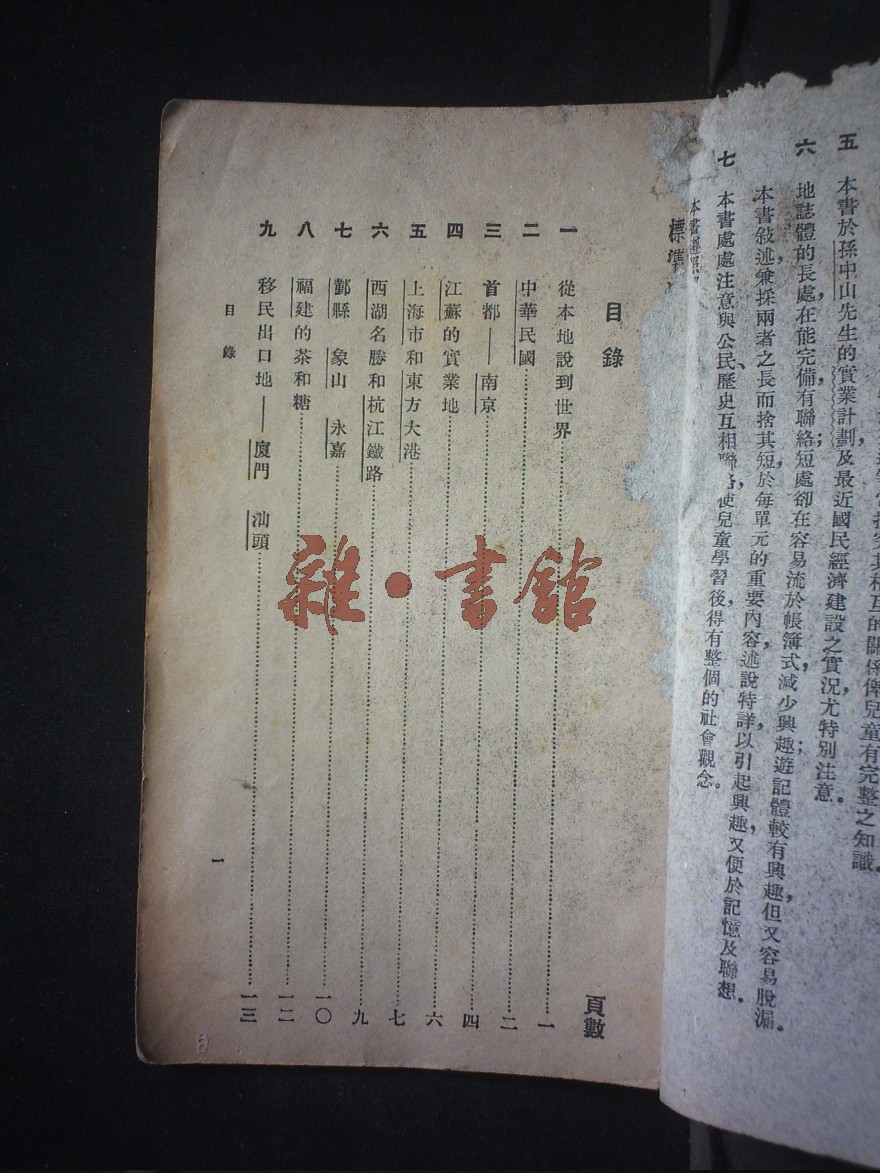 五 本書於孫中山先生的實業計劃,及最近國民經濟建設之實況,尤特別注意。
六 地誌體的長處,在能完備有聯絡;短處卻在容易流於帳簿式,減少興趣;遊記體較有興趣,但又容易脫漏。
本書敍述,兼採兩者之長而捨其短,於每單元的重要內容,述說特詳,以引起興趣,又便於記憶及聯想。
七 本書處處注意與公民、歷史互相聯絡,使兒童學習後,得有整個的社會觀念。
本書遵照
標準
目錄 頁數
一 從本地說到世界 一
二 中華民國 二
三 首都——南京 四
四 江蘇的實業地 六
五 上海市和東方大港 七
六 西湖名勝和杭江鐵路 九
七 鄞縣 象山 永嘉 一〇
八 福建的茶和糖 一二
九 移民出口地——廈門 汕頭 一三
目錄
一
雜·書館